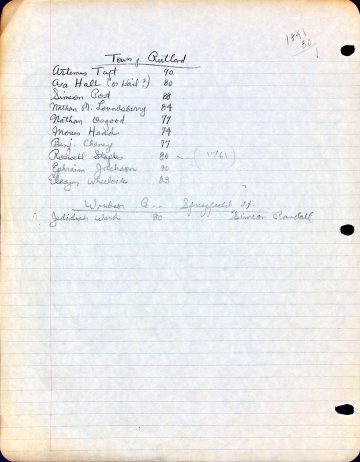 1891
80
Town of Rutland
Artemus Taft 90
Asa Hall (or Hail?) 80
Simeon Post 88
Nathan M. Lounsberry 84
Nathan Osgood 77
Moses Head 74
Benj. Cheney 77
Roswell Staples 80 (1761)
Ephraim Jackson 90
Eleazer Wheelock 83
Windsor Co. Springfield Vt
? Jedidiah Ward 80 Simeon Randall